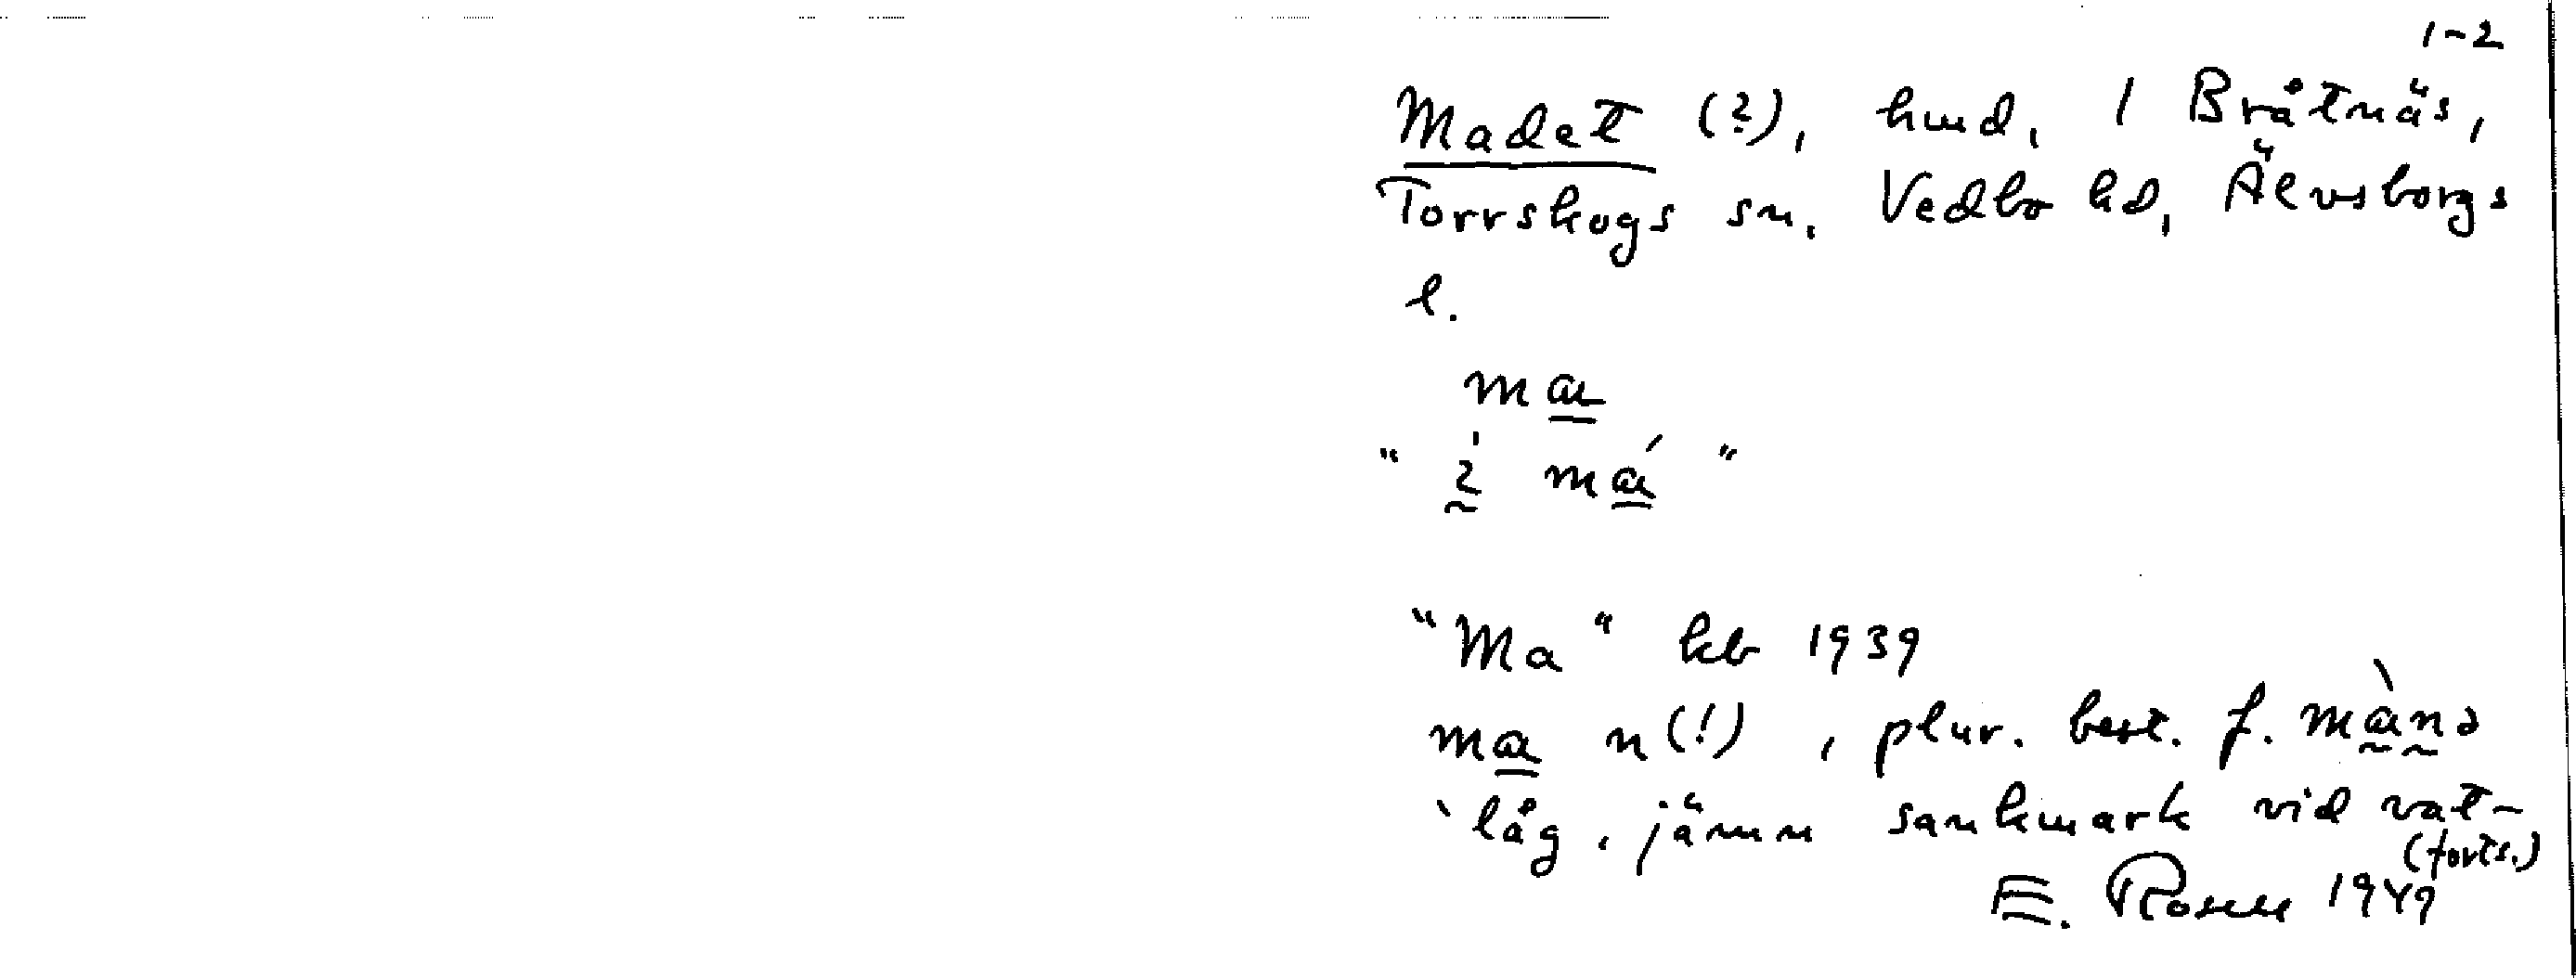 1-2
Madet (?), hmd, 1 Bråtnäs,
Torrskogs sn. Vedbo hd, Älvsborgs
l.
ma
" i má "
"Ma" kb 1939
ma n(!), plur. best. f. màna
`låg, jämn sankmark vid vat-
(forts.)
E. Rosell 1949